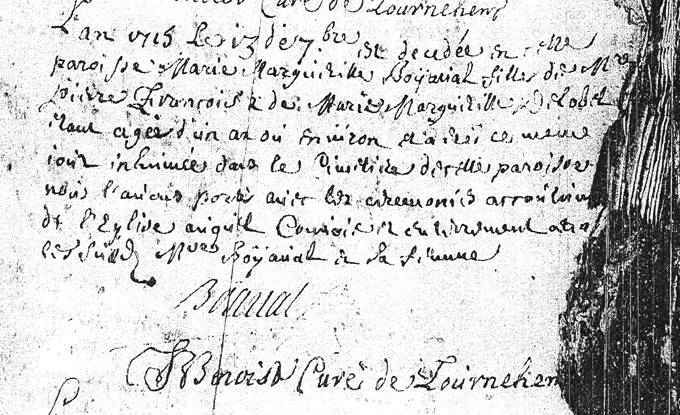 Curé de Tournehem
L'an 1715 Le 13 de 7.bre Est decedée en cette
paroisse Marie Margueritte Boÿaval fille de Mre
pierre François & de Marie Margueritte Delobel
Etant agée d'un an ou Environ et a été ce meme
jour inhumée dans le Cimetiere de cette paroisse
nous l'avons porté avec les ceremonies accoutumé
de l'Eglise auquel Convoie et enterrement
les Mre Boÿaval et sa femme
Boiaual
Benoist Curé de Tournehem